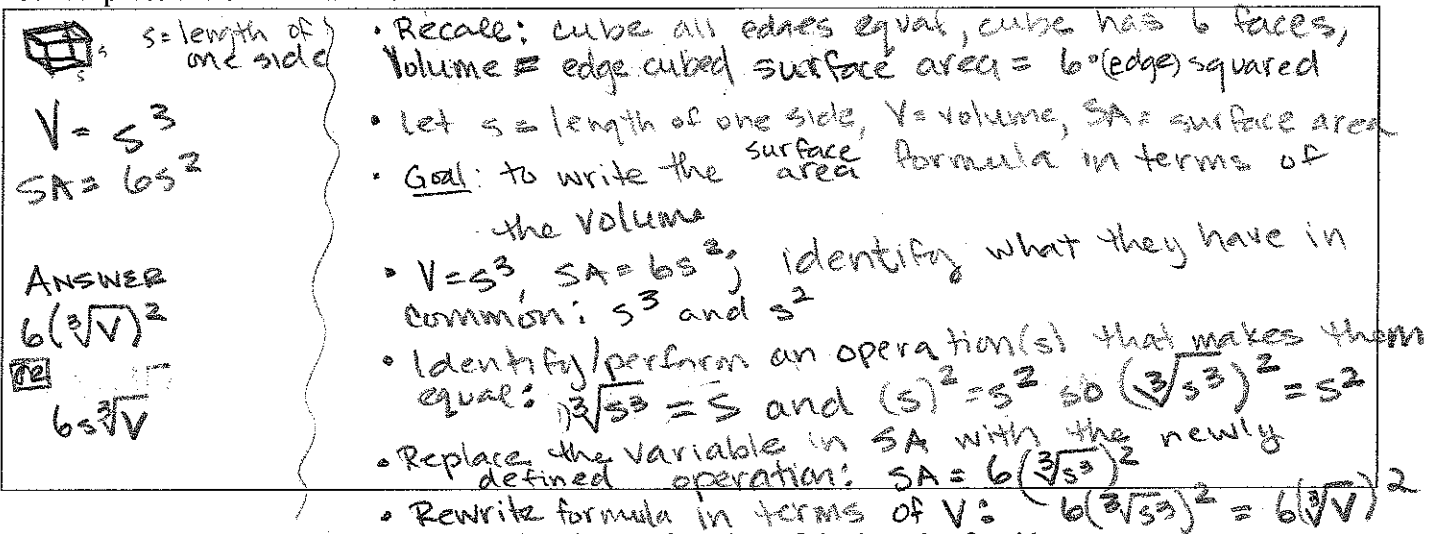 s = length of one side
s
s
V = s³
SA = 6s²
ANSWER
6(∛V)²
or
6s∛V
• Recall: cube all edges equal, cube has 6 faces,
Volume = edge cubed surface area = 6•(edge) squared
• Let s = length of one side, V = volume, SA = surface area
• Goal: to write the surface area formula in terms of
the volume
• V = s³, SA = 6s²; identify what they have in
common: s³ and s²
• Identify/perform an operation(s) that makes them
equal: ∛s³ = s and (s)² = s² so (∛s³)² = s²
• Replace the variable in SA with the newly
defined operation: SA = 6(∛s³)²
• Rewrite formula in terms of V: 6(∛s³)² = 6(∛V)²